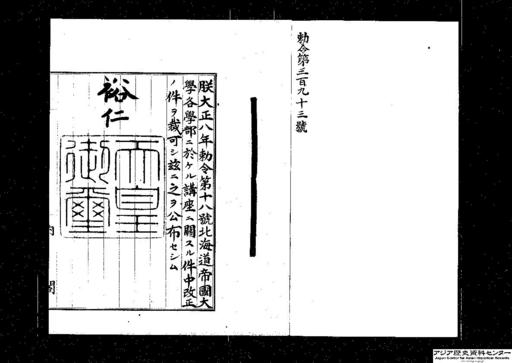 勅令第三百九十三號
朕大正八年勅令第十八號北海道帝國大
學各學部ニ於ケル講座ニ關スル件中改正
ノ件ヲ裁可シ茲ニ之ヲ公布セシム
裕仁
天皇
御璽
内
閣
アジア歴史資料センター
Japan Center for Asian Historical Records